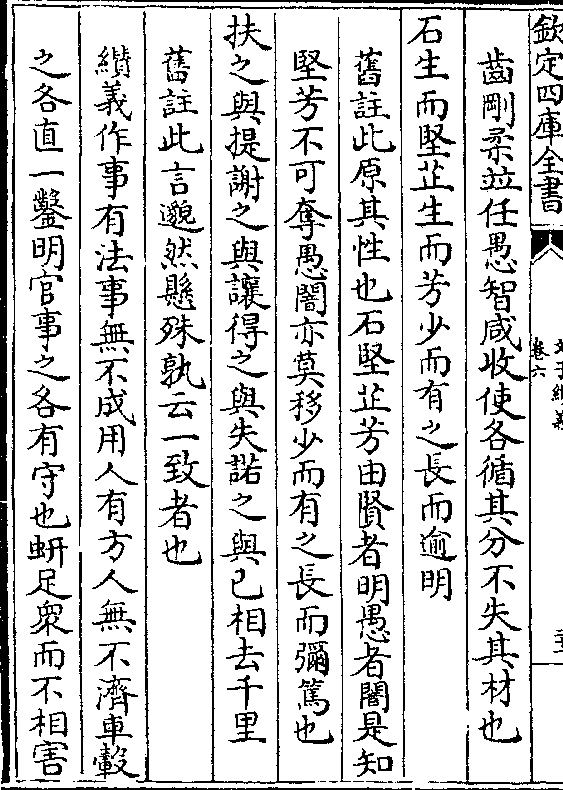 欽定四庫全書
文子纘義
卷六
齒剛柔並任愚智咸收使各循其分不失其材也
石生而堅芷生而芳少而有之長而逾明
舊註此原其性也石堅芷芳由賢者明愚者闇是知
堅芳不可奪愚闇亦莫移少而有之長而彌篤也
扶之與提謝之與讓得之與失諾之與已相去千里
舊註此言邈然懸殊孰云一致者也
纘義作事有法事無不成用人有方人無不濟車轂
之各直一鑿明官事之各有守也蚈足衆而不相害